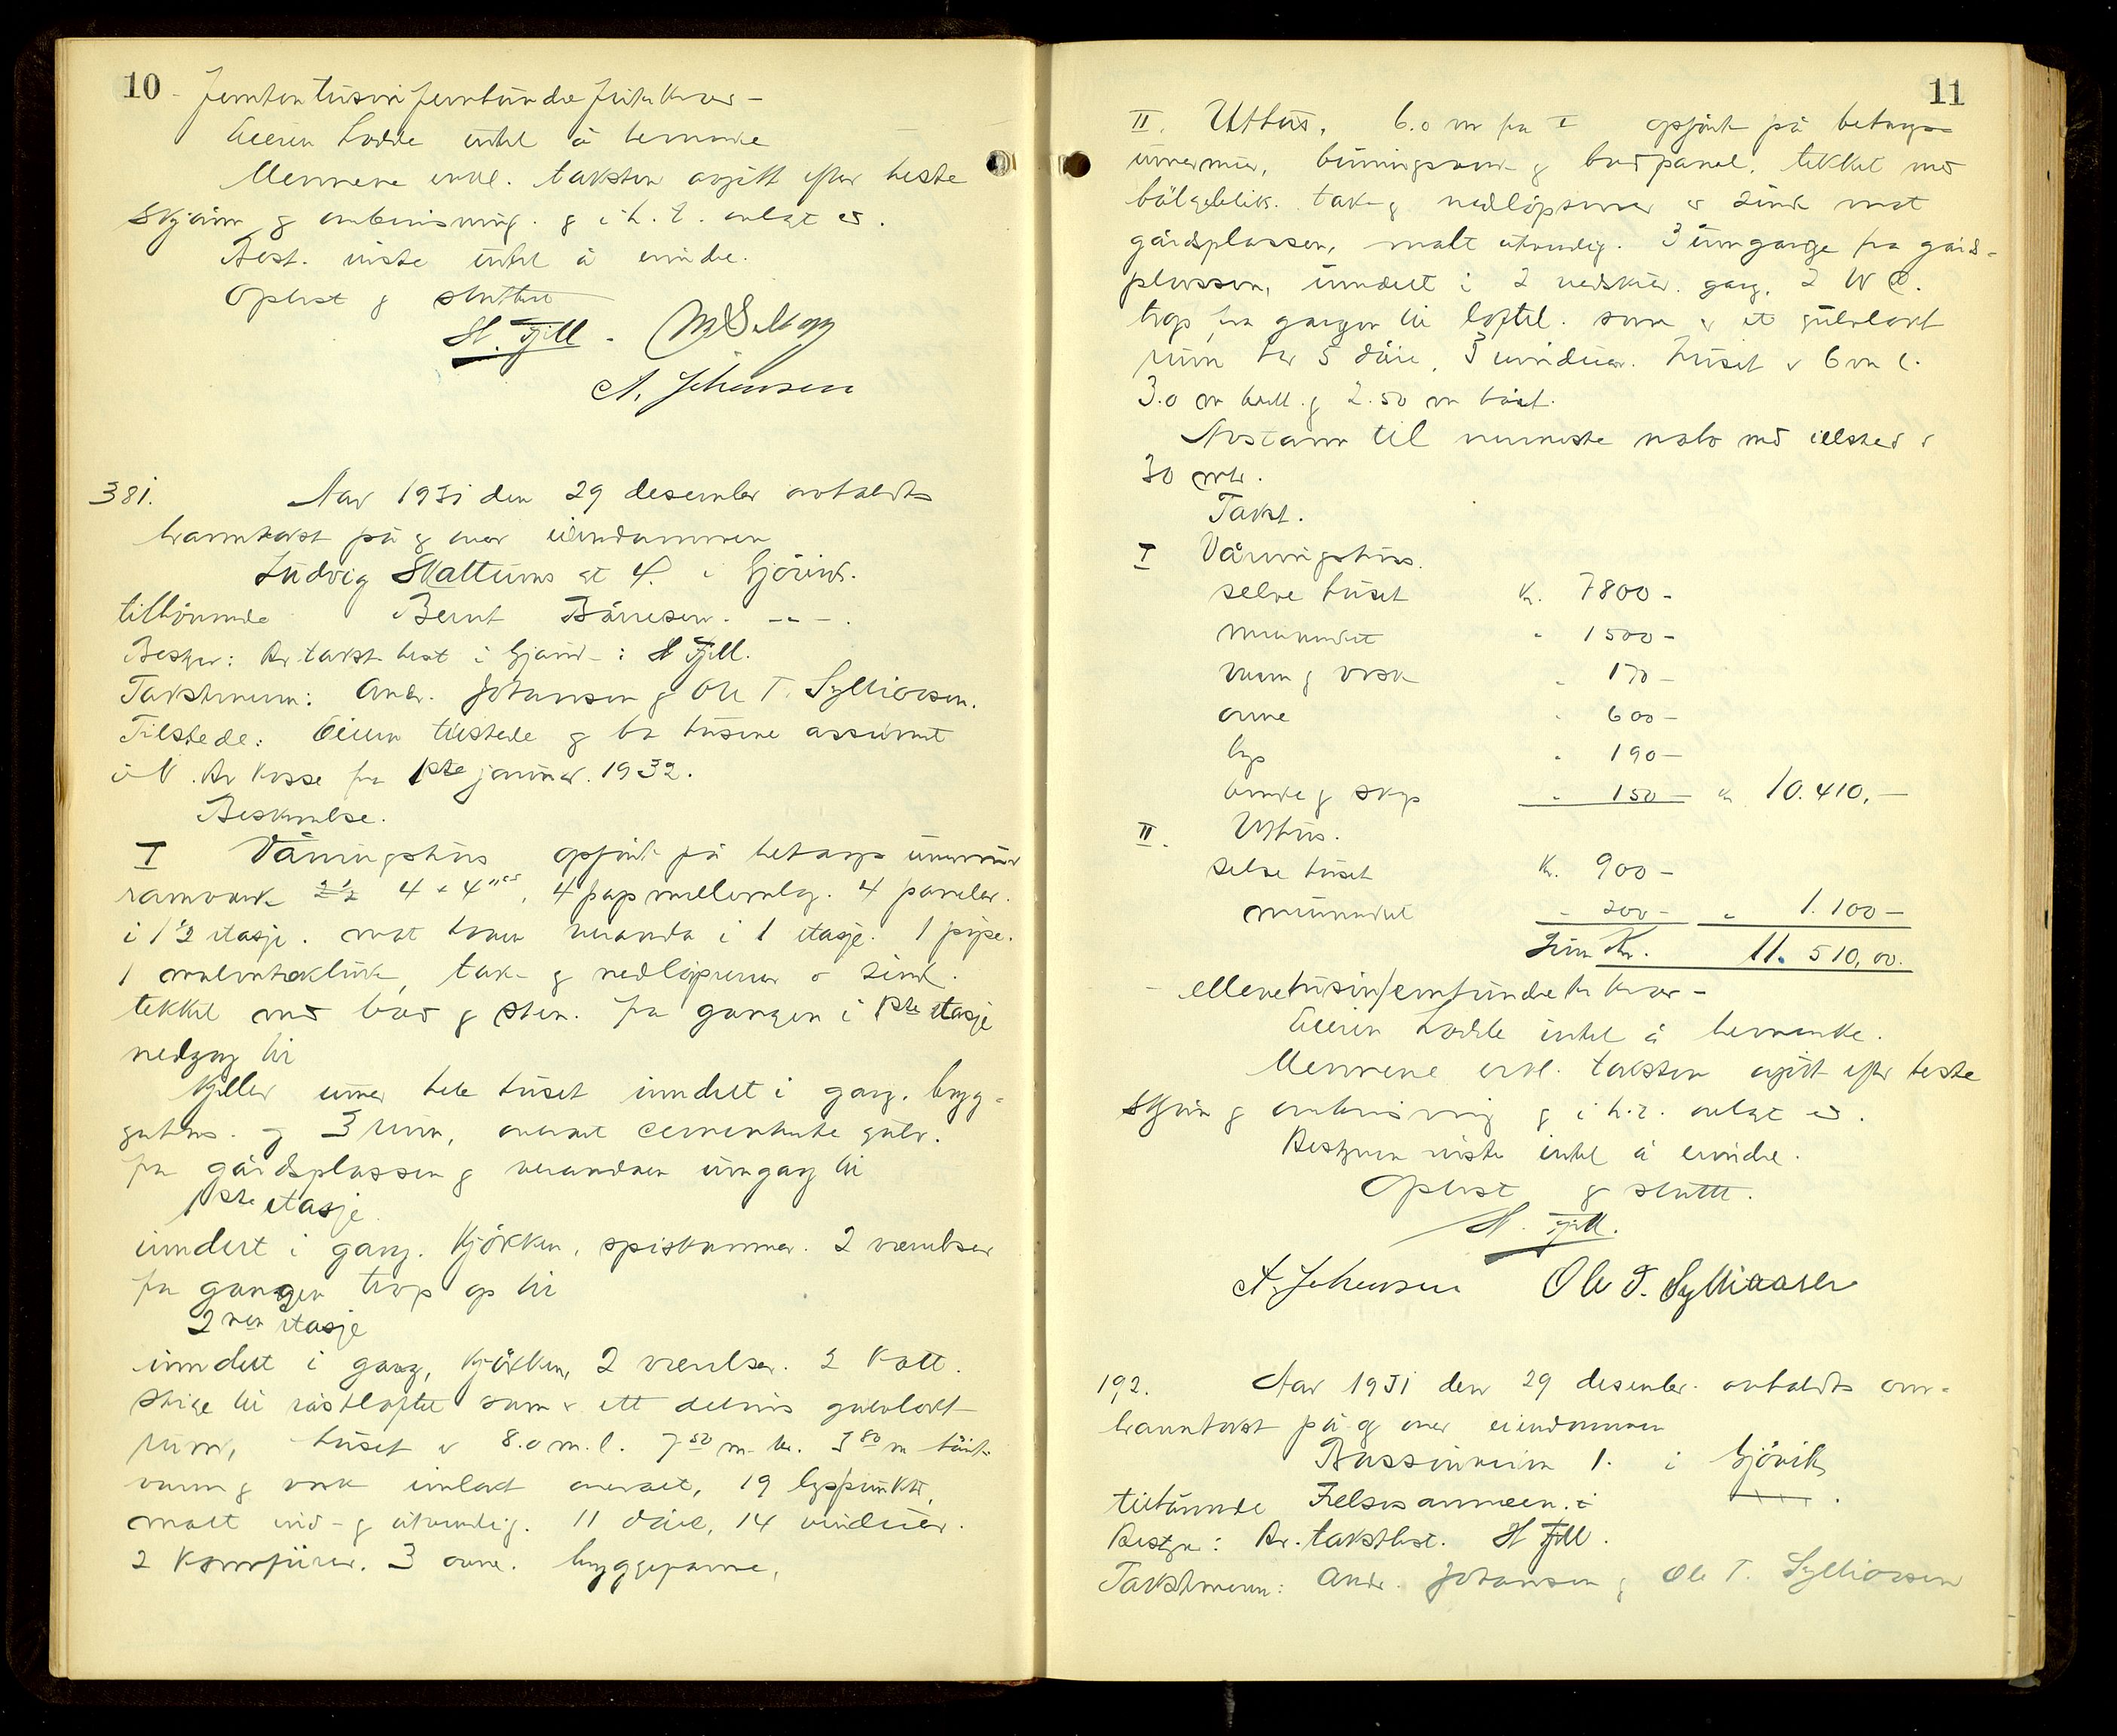 10
- femten tusen femhundre firti Kroner -
Eieren hadde intet å bemerke
Mennene erkl. taksten avgitt efter beste
skjönn & overbevisning. & i h. t. avlagt ed.
Best. visste intet å erindre.
Oplest & sluttet
H. Fjell.
A. Johansen
381.
Aar 1931 den 29 desember avholdtes
branntakst på & over eiendommen
Ludvig Skattums gt 4. i Gjövik.
tilhörende Bernt Börresen. - - - .
Bestyrer: Br takst best i Gjövik : H Fjell.
Takstmenn: Andr. Johansen & Ole T. Sylliaasen.
Tilstede: Eieren tilstede & ba husene assurert
i N. Br Kasse fra 1ste januar. 1932.
Beskrivelse.
I Våningshus opfört på betongs innermur
ramverk 2½ 4 x 4"ers, 4 papmellemlag. 4 paneler.
i 1½ etasje. mot haven veranda i 1 etasje. 1 pipe.
1 , tak- & nedlöpsrenner av sink.
tekket med bord & sten. fra gangen i 1ste etasje
nedgang til
Kjeller under hele huset inndelt i gang. brygg-
gerhus. & 3 rum, overalt cementerte gulv.
fra gårdsplassen & verandaen inngang til
1ste etasje
inndelt i gang. Kjökken, spiskammer. 2 værelser
fra gangen trap op til
2nen etasje
inndelt i gang, Kjökken, 2 værelser. 2 Kott.
Stige til röstloftet som er ett delvis gulvlagt
rum, huset er 8.0 m. l. 7 50 m. br. 3 80 m höit.
vann & vask innlagt overalt, 19 lyspunkter,
malt ind- & utvendig. 11 döre, 14 vinduer.
2 Komfürer. 3 ovne. bryggepanne,
11
II. Uthus. 6.0 m fra I opfört på betongs
innermur, binningsverk & bordpanel. tekket med
bölgeblik. tak- & nedlöpsrenner av sink mot
gårdsplassen, malt utvendig. 3 innganger fra gårds-
plassen, inndelt i 2 vedskur. gang, 2 W C.
trap fra gangen til loftet. som er et gulvlagt
rum har 5 döre, 3 vinduer. huset er 6 m l.
3.0 m bredt & 2.50 m höit.
Avstann til nærmeste nabo med ildsted er
30 mtr.
Takst.
I Våningshus.
selve huset Kr. 7800 -
murverket " 1500 -
vann & vask " 170 -
ovne " 600 -
lys " 190 -
brende & skap " 150 - Kr 10.410,—
II. Uthus.
selve huset Kr. 900 -
murverket - 200 - " 1.100 -
Sum Kr. 11.510,00.
- ellevetusenfemhundreti kroner -
Eieren hadde intet å bemerke.
Mennene erkl. taksten avgitt efter beste
skjönn & overbevisning & i h. t. avlagt ed.
Bestyreren visste intet å erindre.
Oplest & sluttet.
H. Fjell.
A. Johansen Ole T. Sylliaasen
192.
Aar 1931 den 29 desember. avholdtes om-
branntakst på & over eiendommen
Bassinveien 1. i Gjövik
tilhörende Frelsesarmeen. i
Bestyr: Br. takstbest. H Fjell.
Takstmenn: Andr. Johansen & Ole T. Sylliaasen